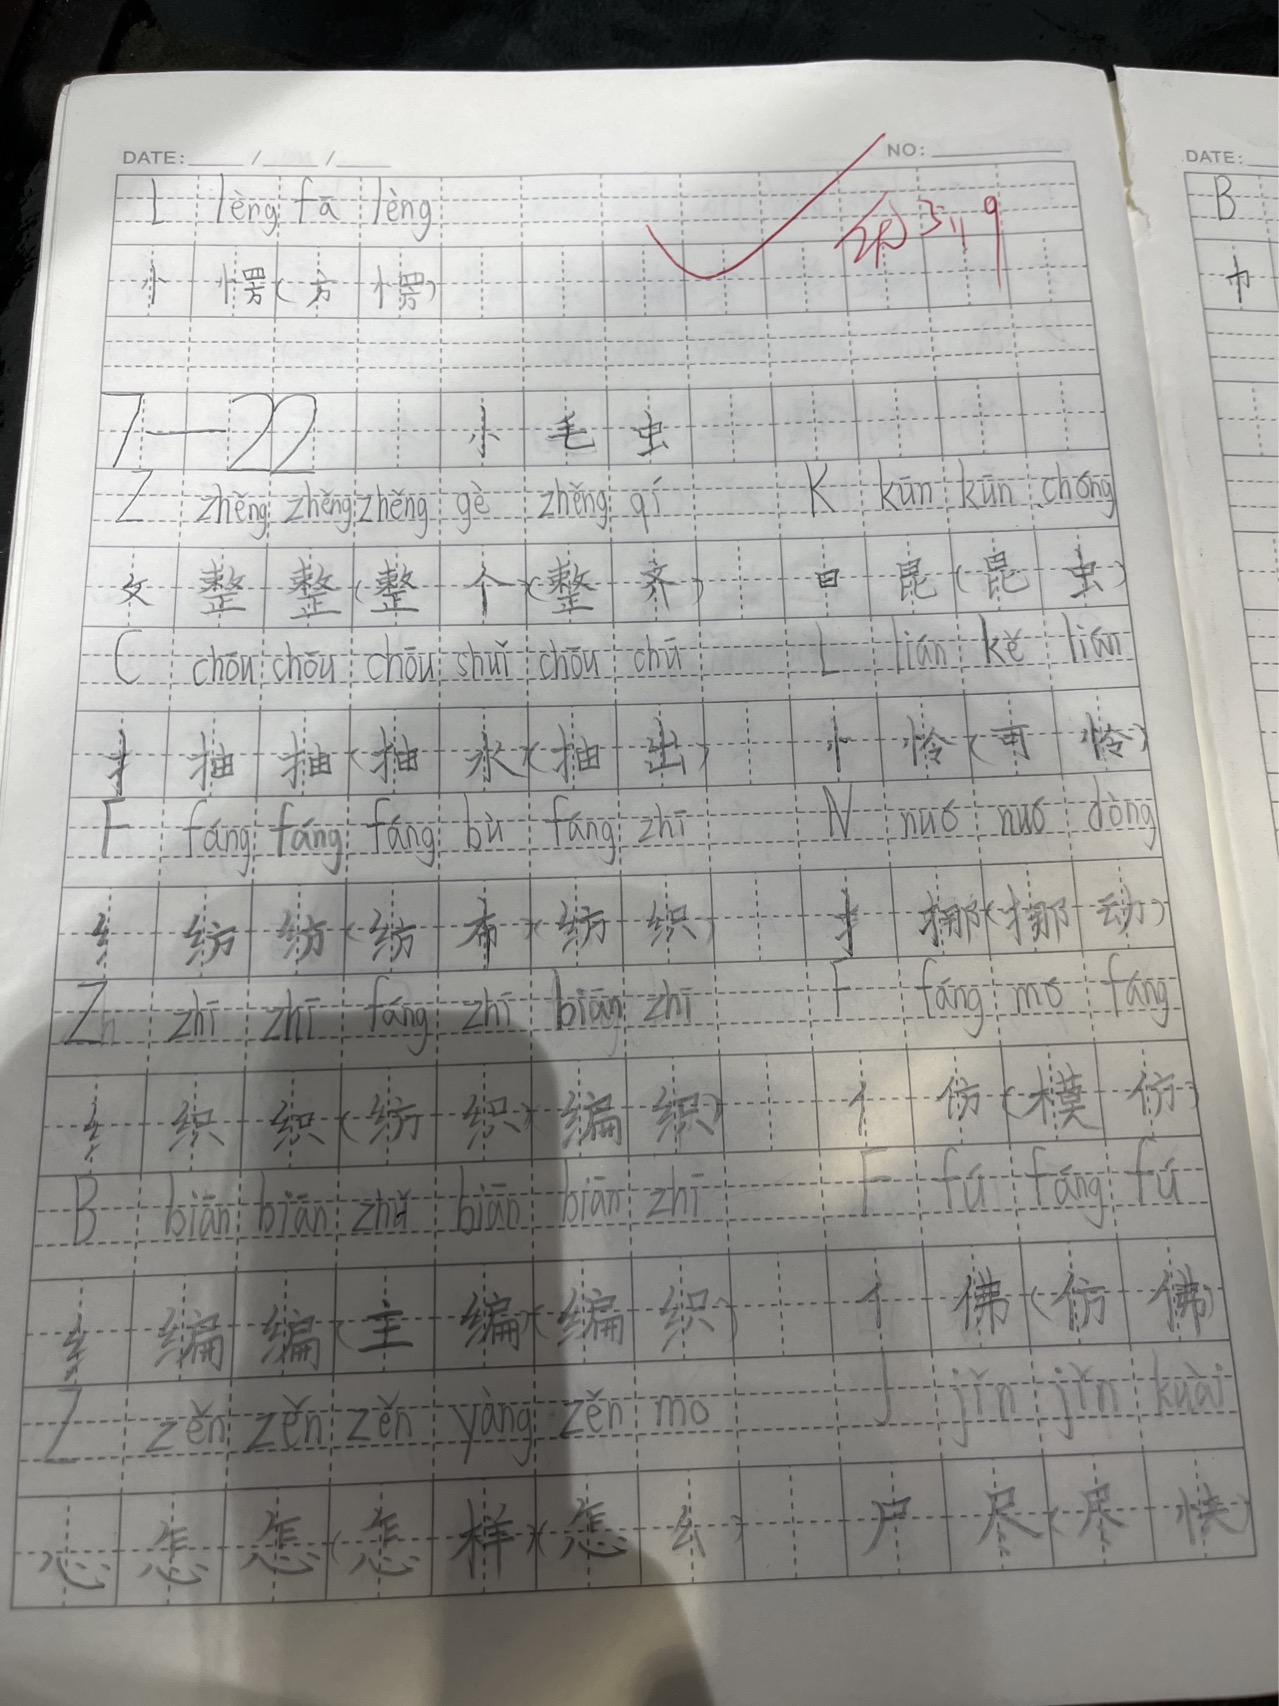 DATE: / / NO:
L lèng fā lèng
忄 愣(方 愣)
7—22 小 毛 虫
Z zhěng zhěng zhěng gè zhěng qí K kūn kūn chóng
攵 整 整(整 个)(整 齐) 日 昆(昆 虫)
C chōu chōu chōu shuǐ chōu chū L lián kě lián
扌 抽 抽(抽 水)(抽 出) 忄 怜(可 怜)
F fáng fáng fáng bù fáng zhī N nuó nuó dòng
纟 纺 纺(纺 布)(纺 织) 扌 挪(挪 动)
Zh zhī zhī fáng zhī biān zhī F fáng mó fáng
纟 织 织(纺 织)(编 织) 亻 仿(模 仿)
B biān biān zhǔ biān biān zhī F fú fáng fú
纟 编 编(主 编)(编 织) 亻 佛(仿 佛)
Z zěn zěn zěn yàng zěn mo J jǐn jǐn kuài
心 怎 怎(怎 样)(怎 么) 尸 尽(尽 快)
DATE:
B